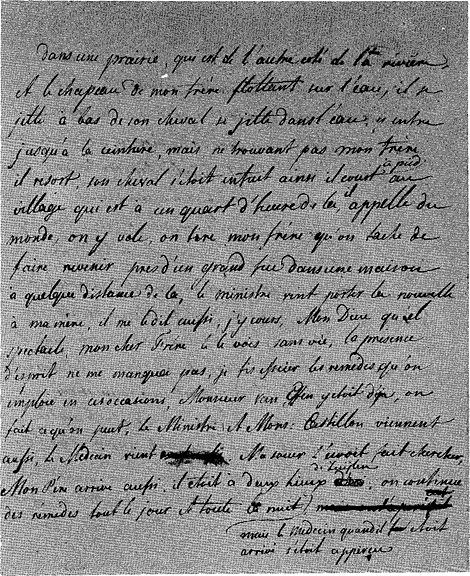 dans une prairie, qui est de l'autre coté de la rivière,
et le chapeau de mon frère flottant sur l'eau, il se
jette à bas de son cheval se jette dans l'eau, y entre
jusqu'à la ceinture, mais ne trouvant pas mon frère
il resort, son cheval s'étoit enfuit ainsi il court à pied au
village qui est à un quart d'heure de la, il appelle du
monde, on y vole, on tire mon frère qu'on tache de
faire revenir pres d'un grand feu dans une maison
à quelque distance de la, le ministre vint porter la nouvelle
à ma mère, il me le dit aussi, j'y cours, Mon Dieu quel
spectacle mon cher Frère je le vois sans vie, la presence
d'esprit ne me manqua pas, je fis essaier les remedes qu'on
emploie en ces occasions, Monsieur van Effen y etoit deja, on
fait ce qu'on peut, le Ministre et Mons: Castillon viennent
aussi, le Medecin vient Ma sœur l'avoit fait chercher,
Mon Père arrive aussi il étoit à deux lieux d'ici, on continue
des remedes tout le jour et toute la nuit,
mais le Medecin quand il etoit
arrivé s'étoit apperçu